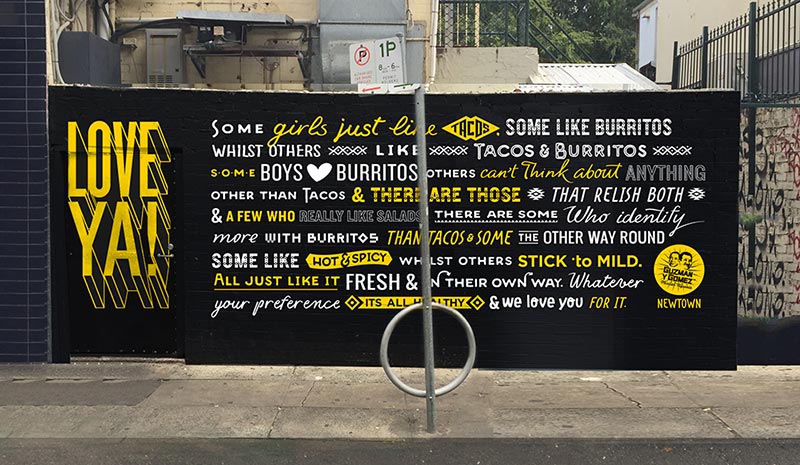 P
1P
8AM-6PM
LOVE
YA!
SOME girls just like TACOS SOME LIKE BURRITOS
WHILST OTHERS LIKE TACOS & BURRITOS
SOME BOYS ♥ BURRITOS OTHERS can't think about ANYTHING
OTHER THAN TACOS & THERE ARE THOSE THAT RELISH BOTH
& A FEW WHO REALLY LIKE SALADS THERE ARE SOME Who identify
more WITH BURRITOS THAN TACOS & SOME THE OTHER WAY ROUND
SOME LIKE HOT & SPICY WHILST OTHERS STICK to MILD.
ALL JUST LIKE IT FRESH & IN THEIR OWN WAY. Whatever
your preference ITS ALL HEALTHY & we love you FOR IT.
GUZMAN
Y GOMEZ
NEWTOWN